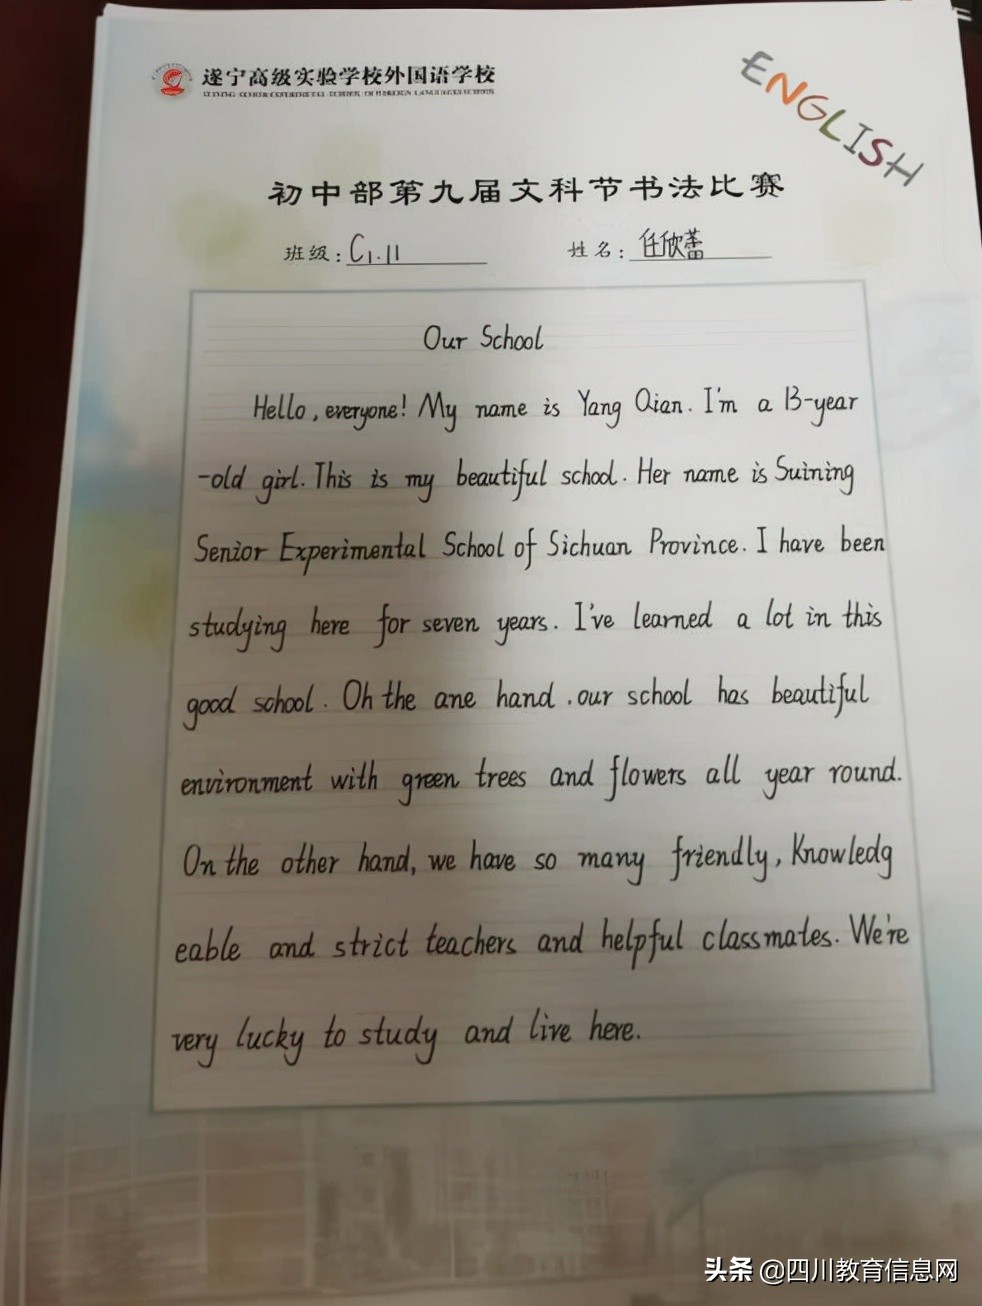 遂宁高级实验学校外国语学校
ENGLISH
初中部第九届文科节书法比赛
班级: C1.11 姓名: 任欣蕾
Our School
Hello, everyone! My name is Yang Qian. I'm a 13-year
-old girl. This is my beautiful school. Her name is Suining
Senior Experimental School of Sichuan Province. I have been
studying here for seven years. I've learned a lot in this
good school. Oh the ane hand .our school has beautiful
environment with green trees and flowers all year round.
On the other hand, we have so many friendly, Knowledg
eable and strict teachers and helpful classmates. We're
very lucky to study and live here.
头条 @四川教育信息网